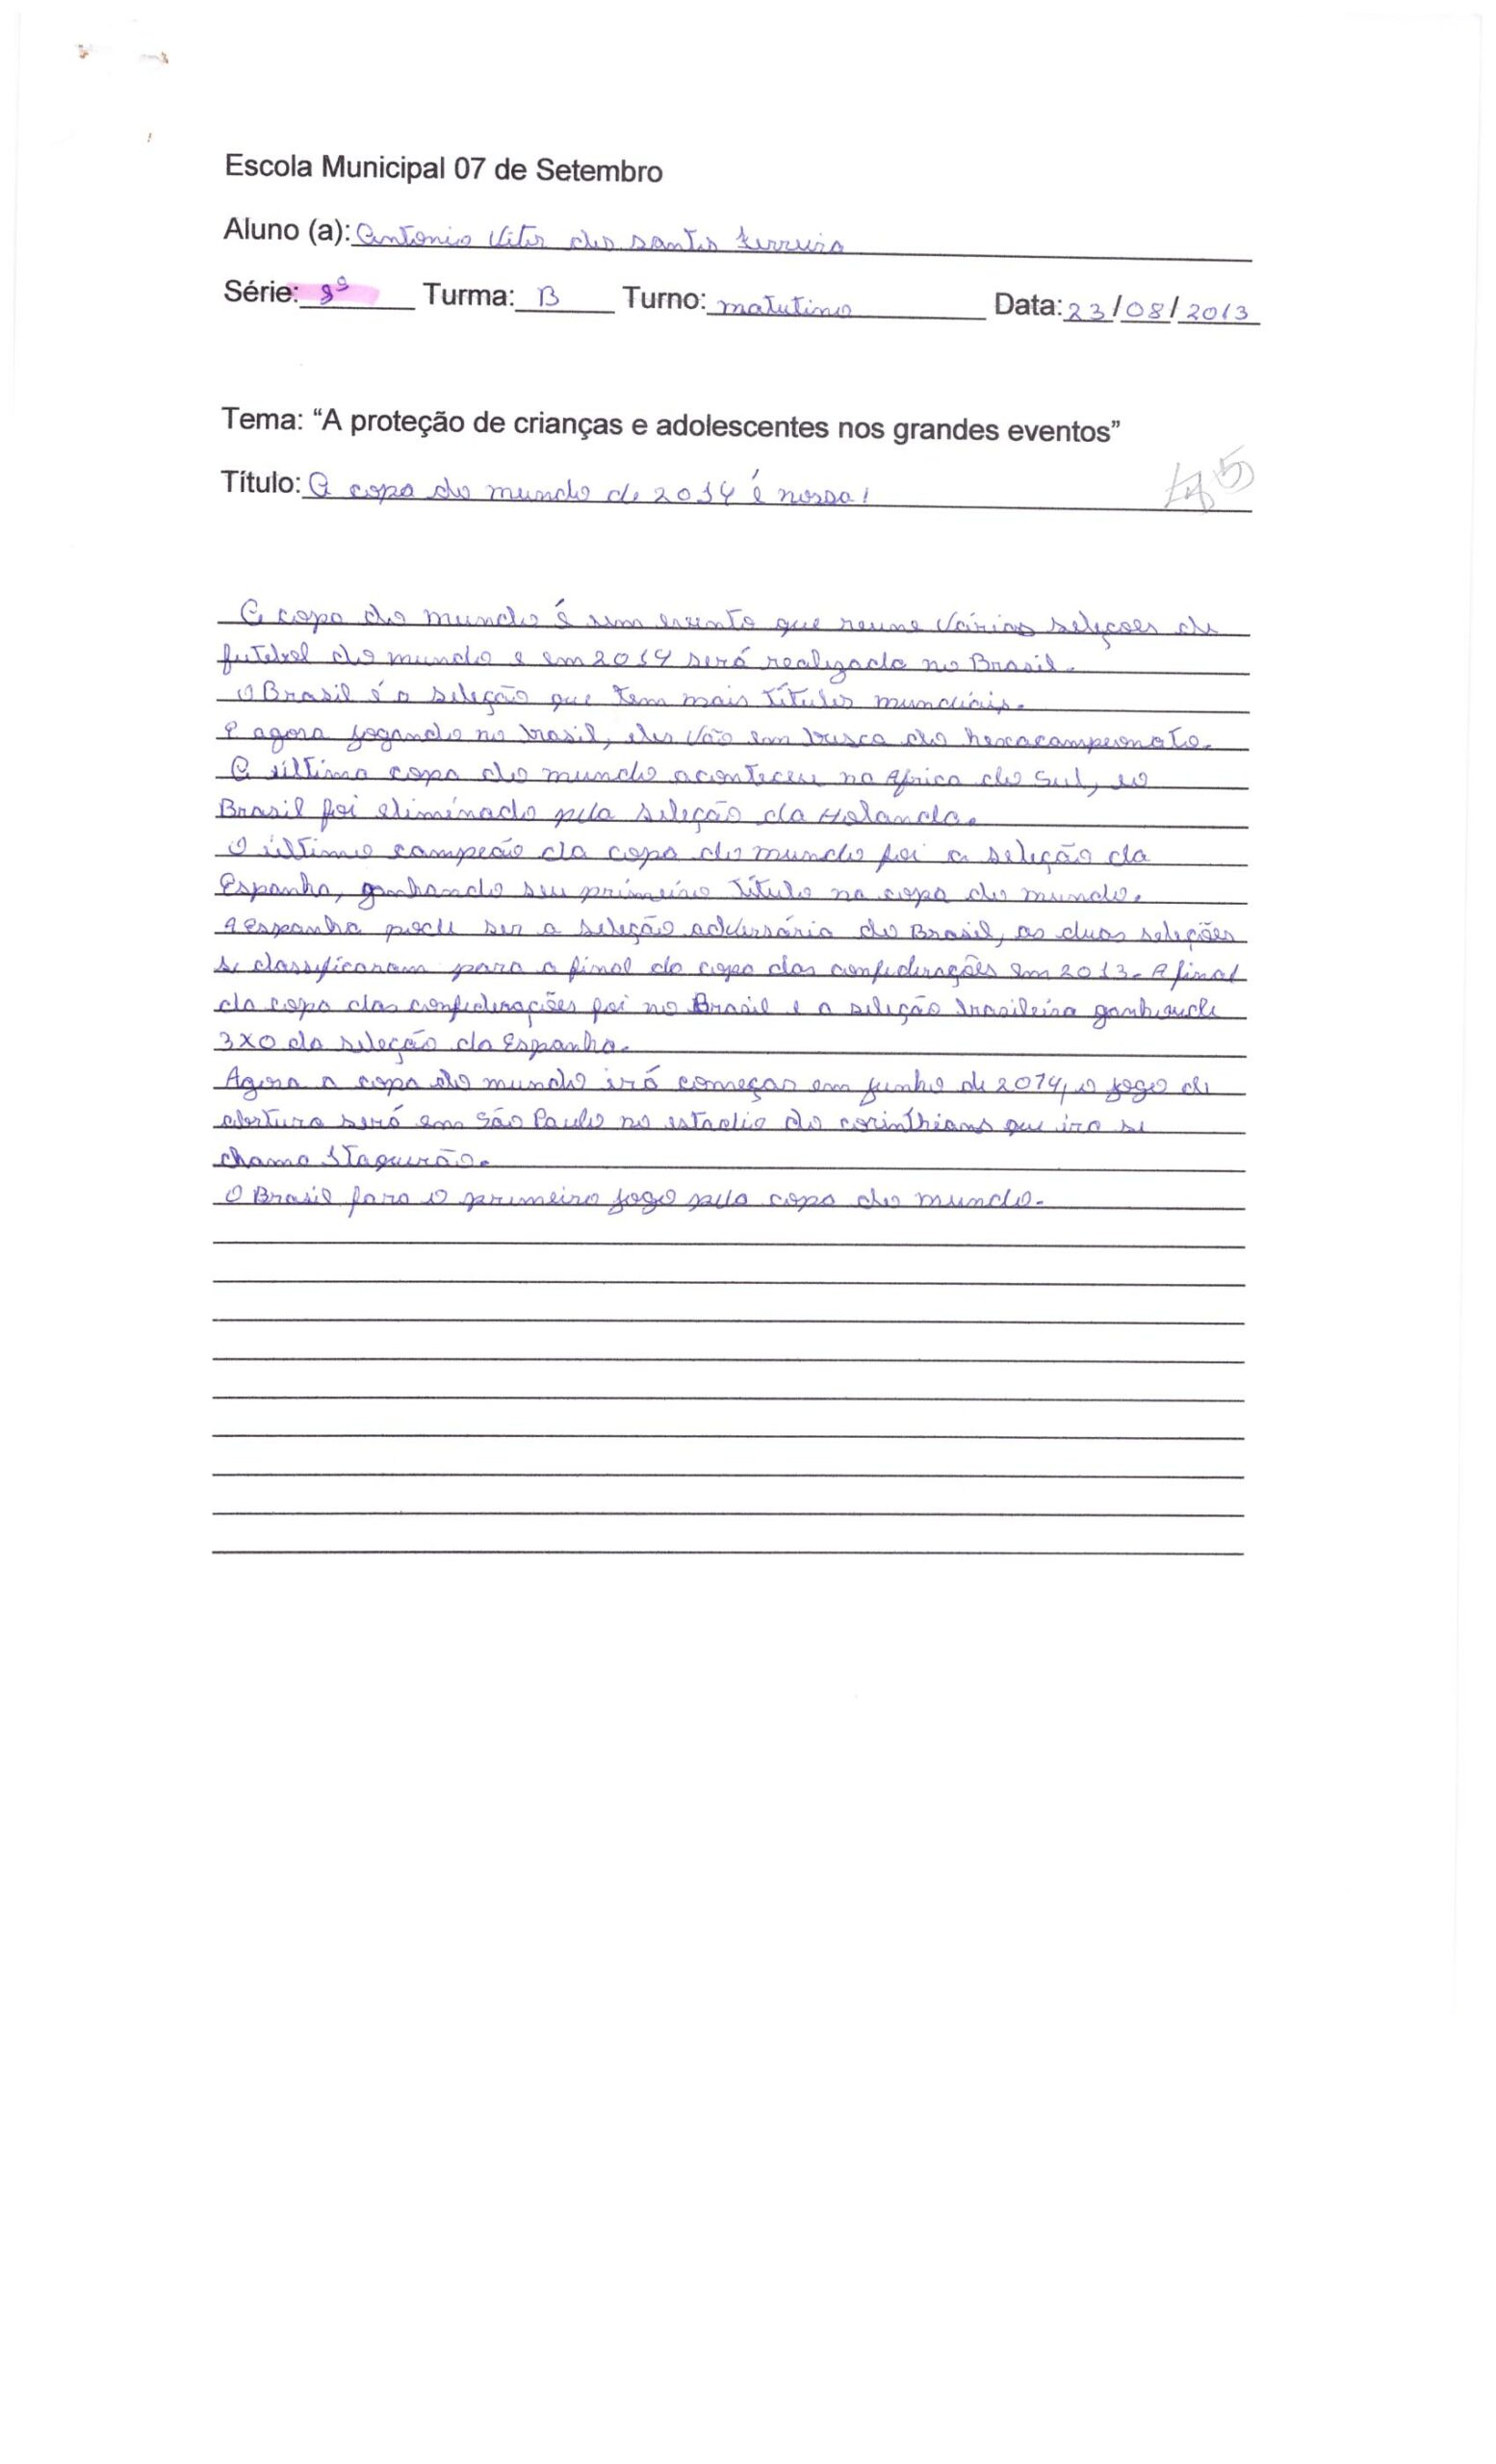 Escola Municipal 07 de Setembro
Aluno (a): Antonio Vitor dos santos ferreira
Série: 8º Turma: B Turno: matutino Data: 23/08/2013
Tema: “A proteção de crianças e adolescentes nos grandes eventos”
Título: A copa do mundo de 2014 é nossa!
A copa do mundo é um evento que reune várias seleçoes de
futebol do mundo e em 2014 será realizada no Brasil.
O Brasil é a seleção que tem mais títulos mundiais.
E agora jogando no brasil, eles vão em busca do hexacampeonato.
A última copa do mundo aconteceu na Africa do Sul, eo
Brasil foi eliminado pela seleção da Holanda.
O último campeão da copa do mundo foi a seleção da
Espanha, ganhando seu primeiro título na copa do mundo.
A Espanha pode ser a seleção adversária do Brasil, as duas seleções
se classificaram para a final da copa das confederações em 2013. A final
da copa das confederações foi no Brasil e a seleção brasileira ganhou de
3x0 da seleção da Espanha.
Agora a copa do mundo irá começar em junho de 2014, o jogo de
abertura será em São Paulo no estadio do corinthians que ira se
chama Itaquerão.
O Brasil fara o primeiro jogo pela copa do mundo.